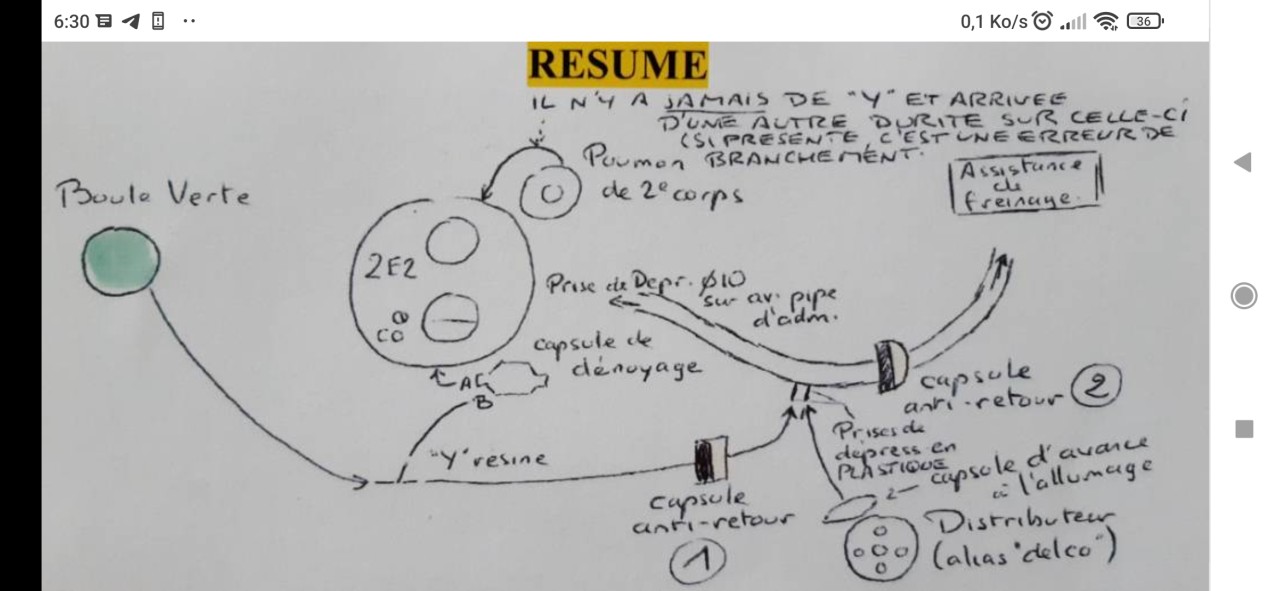 6:30
0,1 Ko/s
36
RESUME
IL N'Y A JAMAIS DE "Y" ET ARRIVEE
D'UNE AUTRE DURITE SUR CELLE-CI
(SI PRESENTE, C'EST UNE ERREUR DE
BRANCHEMENT.
Poumon
de 2e corps
Assistance
de
freinage.
Boule Verte
2E2
CO
Prise de Depr. Ø10
sur av. pipe
d'adm.
capsule de
dénoyage
A
B
"Y" résine
capsule
anti-retour 2
Prises de
dépress en
PLASTIQUE
capsule d'avance
à l'allumage
capsule
anti-retour
1
Distributeur
(alias "delco")